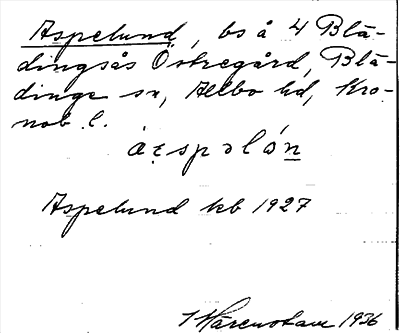 Aspelund, bs å 4 Blä-
dingsås Östregård, Blä-
dinge sn, Allbo hd, Kro-
nob. l.
Aspelund kb 1927
1936